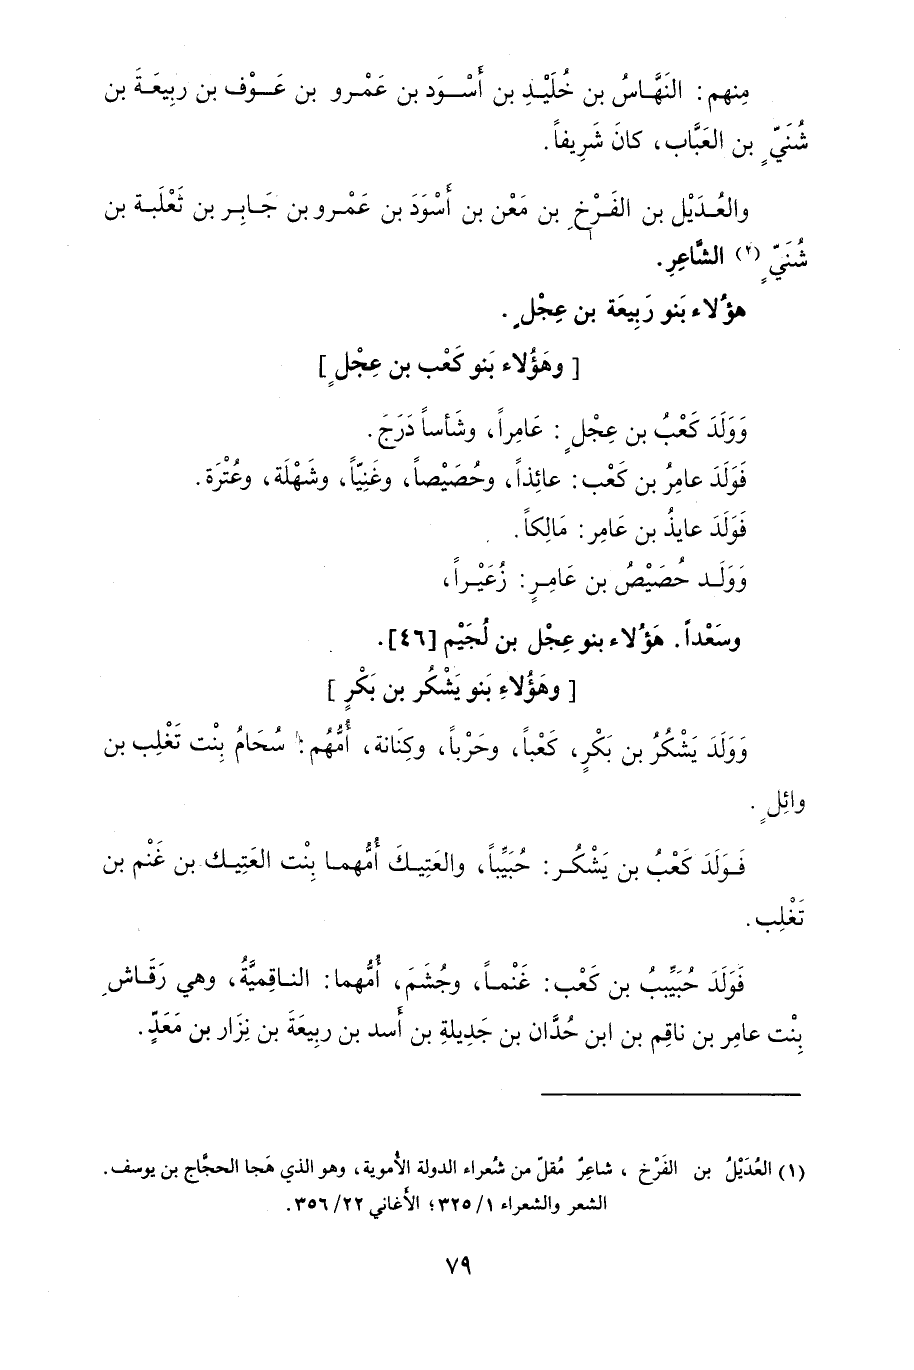 مِنهم: النَهَّاسُ بن خُلَيْدِ بن أَسْوَد بن عَمْرو بن عَوْف بن ربيعَةَ بن
شُنَيّ بن العَبَّاب، كانَ شَرِيفاً.
والعُدَيْل بن الفَرْخِ بن مَعْن بن أَسْوَدَ بن عَمْرو بن جَابِر بن ثَعْلَبة بن
شُنَيّ (٢) الشَّاعِرِ.
هؤُلاء بَنو رَبِيعَة بن عِجْلٍ.
[ وهَؤُلاء بَنو كَعْب بن عِجْلٍ ]
وَوَلَدَ كَعْبُ بن عِجْلٍ: عَامِراً، وشَأساً دَرَجَ.
فَوَلَدَ عامِرُ بن كَعْب: عائِذاً، وحُصَيْصاً، وغَنِيّاً، وشَهْلَة، وعُتْرَة.
فَوَلَدَ عايذُ بن عَامِر: مَالِكاً.
وَوَلَد حُصَيْصُ بن عَامِرٍ: زُعَيْراً،
وسَعْداً. هَؤُلاء بنو عِجْل بن لُجَيْم [٤٦].
[ وهَؤُلاءِ بَنو يَشْكر بن بَكْرٍ ]
وَوَلَدَ يَشْكُرُ بن بَكْرٍ، كَعْباً، وحَرْباً، وكِنَانة، أُمُّهُم: سُحَامُ بِنْت تَغْلِب بن
وائِلٍ.
فَوَلَدَ كَعْبُ بن يَشْكُر: حُبَيِّباً، والعَتِيكَ أُمُّهما بِنْت العَتِيك بن غَنْم بن
تَغْلِب.
فَوَلَدَ حُبَيِّبُ بن كَعْب: غَنْماً، وجُشَمَ، أُمُّهما: الناقِمِيَّةُ، وهي رَقَاشِ
بِنْت عامِر بن ناقِم بن ابن جُدَّان بن جَدِيلةِ بن أَسد بن ربيعَةَ بن نِزَار بن مَعَدٍّ.
(١) العُدَيْلُ بن الفَرْخ ، شاعِرٌ مُقلّ من شُعراء الدولة الأُموية، وهو الذي هَجا الحجَّاج بن يوسف.
الشعر والشعراء ٣٢٥/١؛ الأغاني ٣٥٦/٢٢.
٧٩